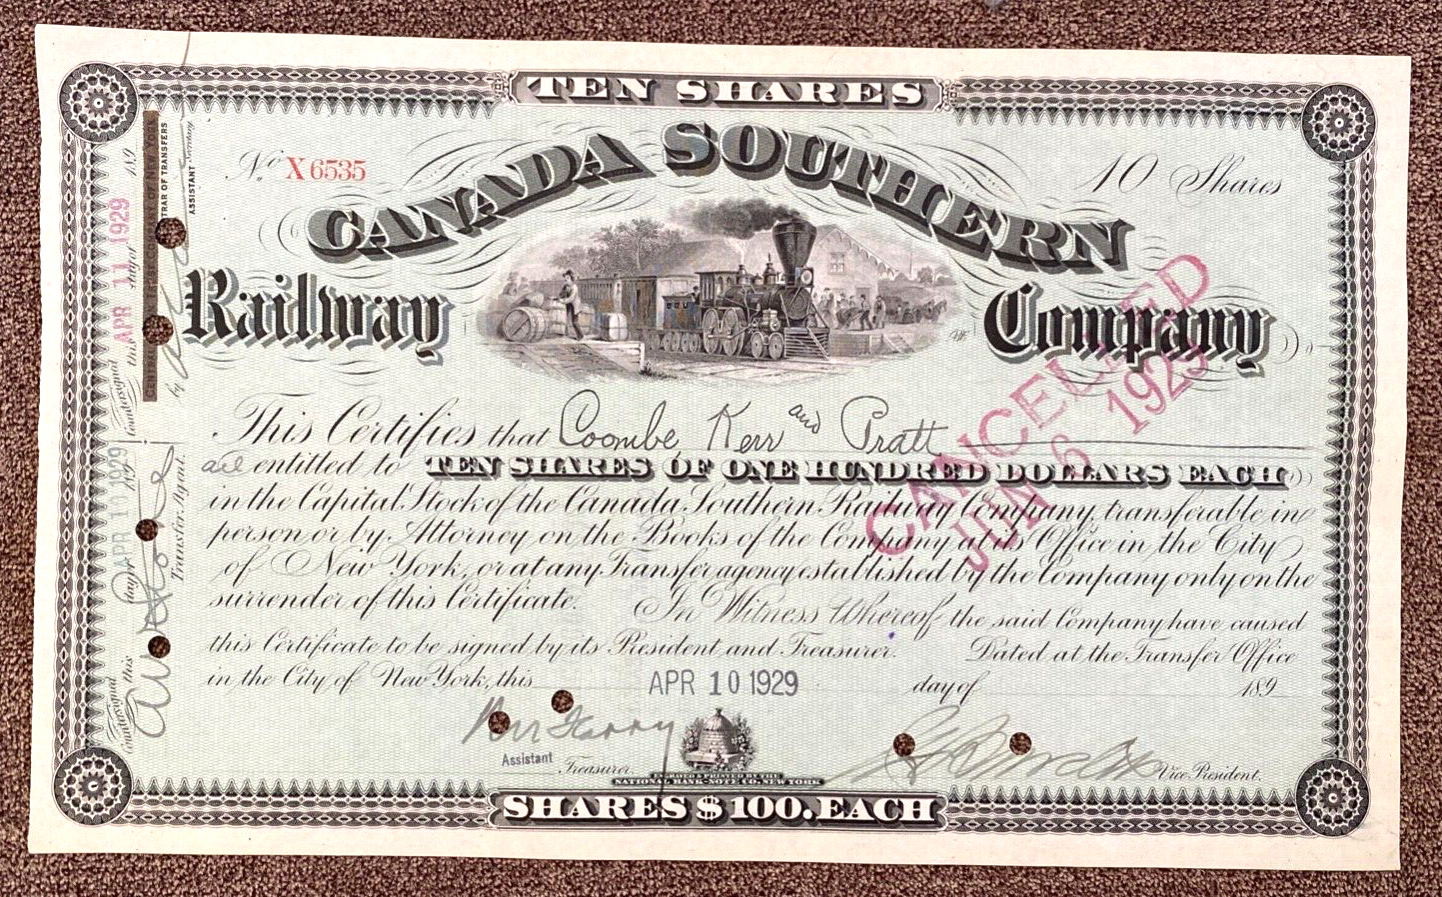 TEN SHARES
No. X 6535
10 Shares
CANADA SOUTHERN
Railway Company
This Certifies that Coombe, Kerr and Pratt
are entitled to TEN SHARES OF ONE HUNDRED DOLLARS EACH
in the Capital Stock of the Canada Southern Railway Company, transferable in
person or by Attorney on the Books of the Company at its Office in the City
of New York, or at any Transfer agency established by the Company only on the
surrender of this Certificate. In Witness Whereof the said Company have caused
this Certificate to be signed by its President and Treasurer. Dated at the Transfer Office
in the City of New York, this APR 10 1929 day of 189
Assistant Treasurer.
Vice President.
ENGRAVED & PRINTED BY THE
NATIONAL BANK-NOTE CO. NEW YORK
SHARES $100. EACH
CANCELLED
JUN 6 1929
Countersigned this APR 11 1929 day of 189
TRAR OF TRANSFERS
by
ASSISTANT Secretary
Countersigned this APR 10 1929 day of 189
Transfer Agent.